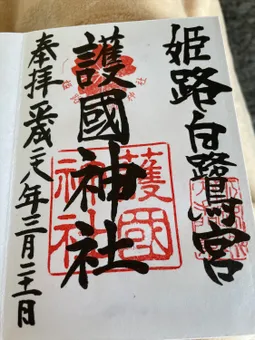 姫路白鷺宮
護國神社
奉拝 平成二八年三月二十一日
護國
神社